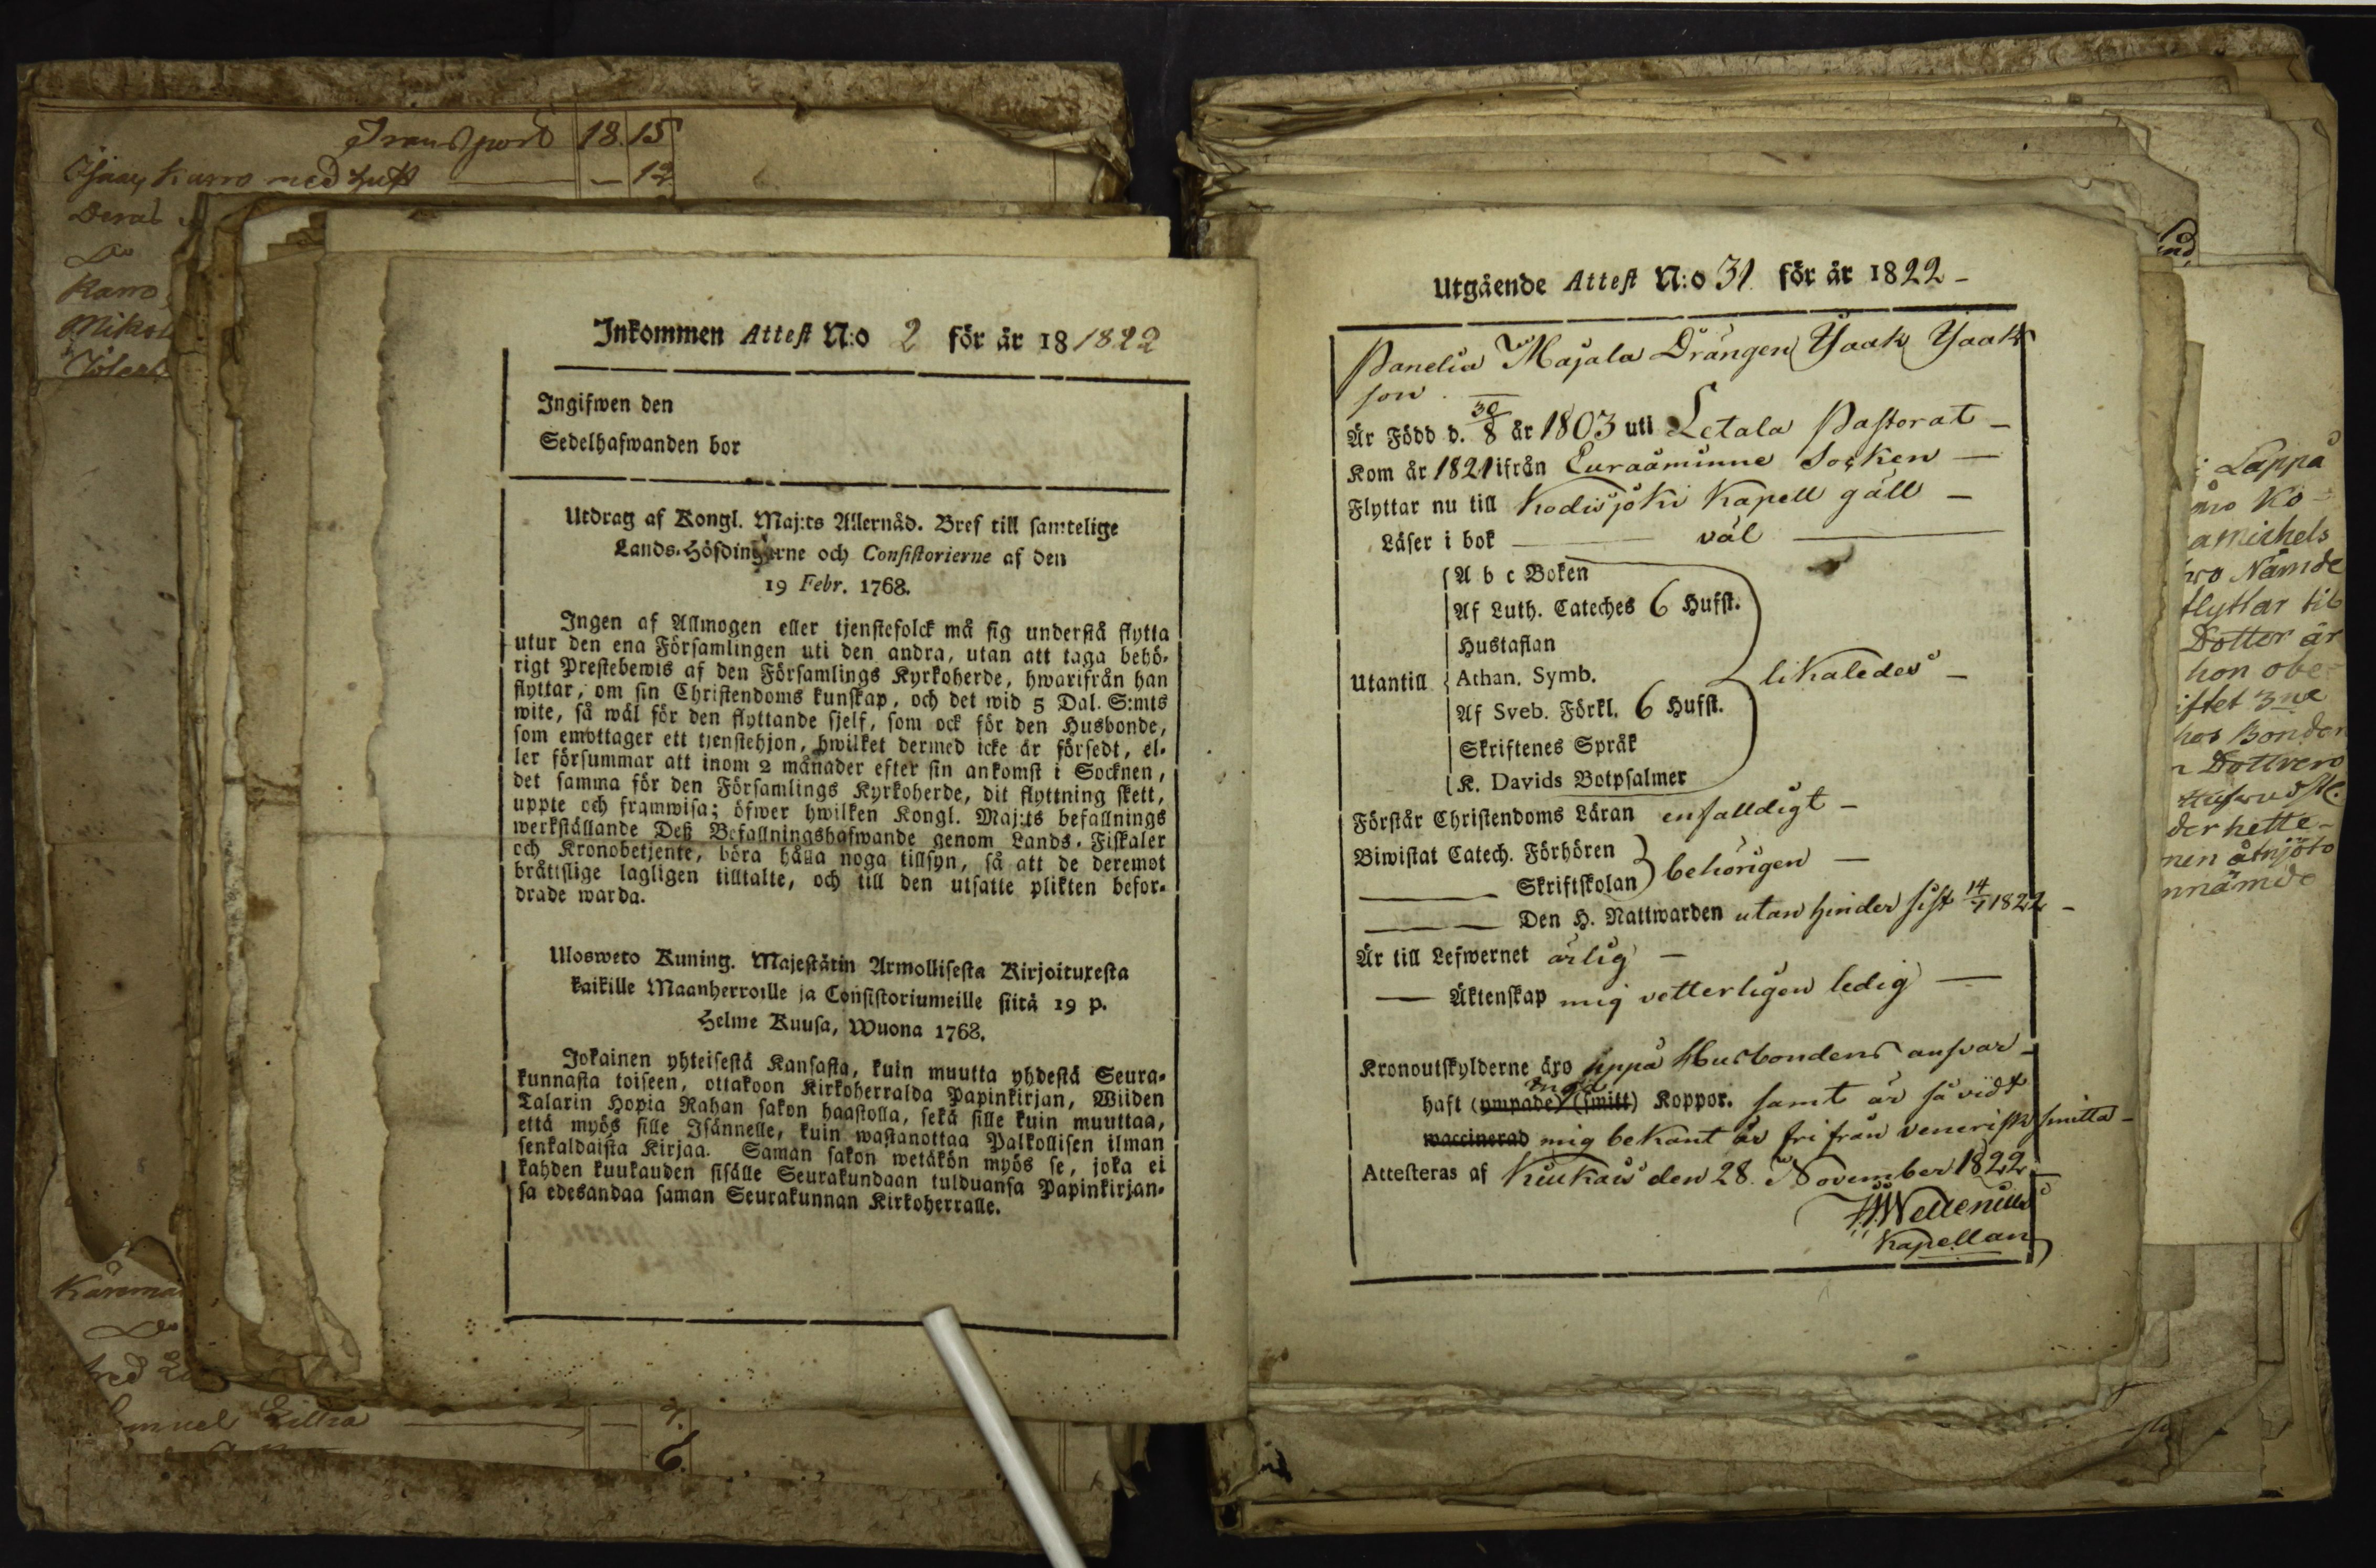 Transport 18. 15
Isaac Karro med hust — 12
Karro
Inkommen Attest N:o 2 för år 18 1822
Ingifwen den
Sedelhafwanden bor
Utdrag af Kongl. Maj:ts Allernåd. Bref till samtelige
Lands-Höfdingarne och Consistorierne af den
19 Febr. 1768.
Ingen af Allmogen eller tjenstefolck må sig understå flytta
utur den ena Församlingen uti den andra, utan att taga behö-
rigt Prestebewis af den Församlings Kyrkoherde, hwarifrån han
flyttar, om sin Christendoms kunskap, och det wid 5 Dal. S:mts
wite, så wäl för den flyttande sjelf, som ock för den Husbonde,
som emottager ett tjenstehjon, hwilket dermed icke är försedt, el-
ler försummar att inom 2 månader efter sin ankomst i Socknen,
det samma för den Församlings Kyrkoherde, dit flyttning skett,
uppte och framwisa; öfwer hwilken Kongl. Maj:ts befallnings
werkställande Deß Befallningshafwande genom Lands-Fiskaler
och Kronobetjente, böra hålla noga tillsyn, så att de deremot
bråttslige lagligen tilltalte, och till den utsatte plikten befor-
drade warda.
Ulosweto Kuning. Majestätin Armollisesta Kirjoituxesta
kaikille Maanherroille ja Consistoriumeille siitä 19 p.
Helme Kuusa, Wuona 1768.
Jokainen yhteisestä Kansasta, kuin muutta yhdestä Seura-
kunnasta toiseen, ottakoon Kirkoherralda Papinkirjan, Wiiden
Talarin Hopia Rahan sakon haastolla, sekä sille kuin muuttaa,
että myös sille Isännelle, kuin wastanottaa Palkollisen ilman
senkaldaista Kirjaa. Saman sakon wetäkön myös se, joka ei
kahden kuukauden sisälle Seurakundaan tulduansa Papinkirjan-
sa edesandaa saman Seurakunnan Kirkoherralle.
6.
Utgående Attest N:o 31 för år 1822 -
Panelia Majala Drängen Isaak Isaaks
son.
Är Född d. 30/8 år 1803 uti Letala Pastorat -
Kom år 1821 ifrån Euraåminne Socken -
Flyttar nu till Kodisjoki Kapell gäll -
Läser i bok — väl —
Utantill
A b c Boken
Af Luth. Cateches 6 Hufst.
Hustaflan
Athan. Symb.
Af Sveb. Förkl. 6 Hufst.
Skriftenes Språk
K. Davids Botpsalmer
likaledes -
Förstår Christendoms Läran enfalldigt -
Biwistat Catech. Förhören
— Skriftskolan
behörigen -
— Den H. Nattwarden utan hinder sist 14/7 1822 -
Är till Lefwernet ärlig -
— Äktenskap mig vetterligen ledig —
Kronoutskylderne äro uppå Husbondens ansvar -
haft (ympade) (smitt) Koppor. samt är så vidt
waccinerad mig bekant är fri från venerisk smitta -
Attesteras af Kiukais den 28. November 1822 -
Kapellan
Lappå
amichels
Nämde
flyttar til
Dotter är
hon obe-
iftet 3ne
hos Bonden
der hette -
nnämde